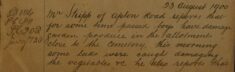 23 August 1900
Mr Shipp of Upton Road reports that
for some time passed boys have damaged
garden produce in the allotments
close to the Cemetery, this morning
some lads were caught damaging
the vegetables &c he also reports that